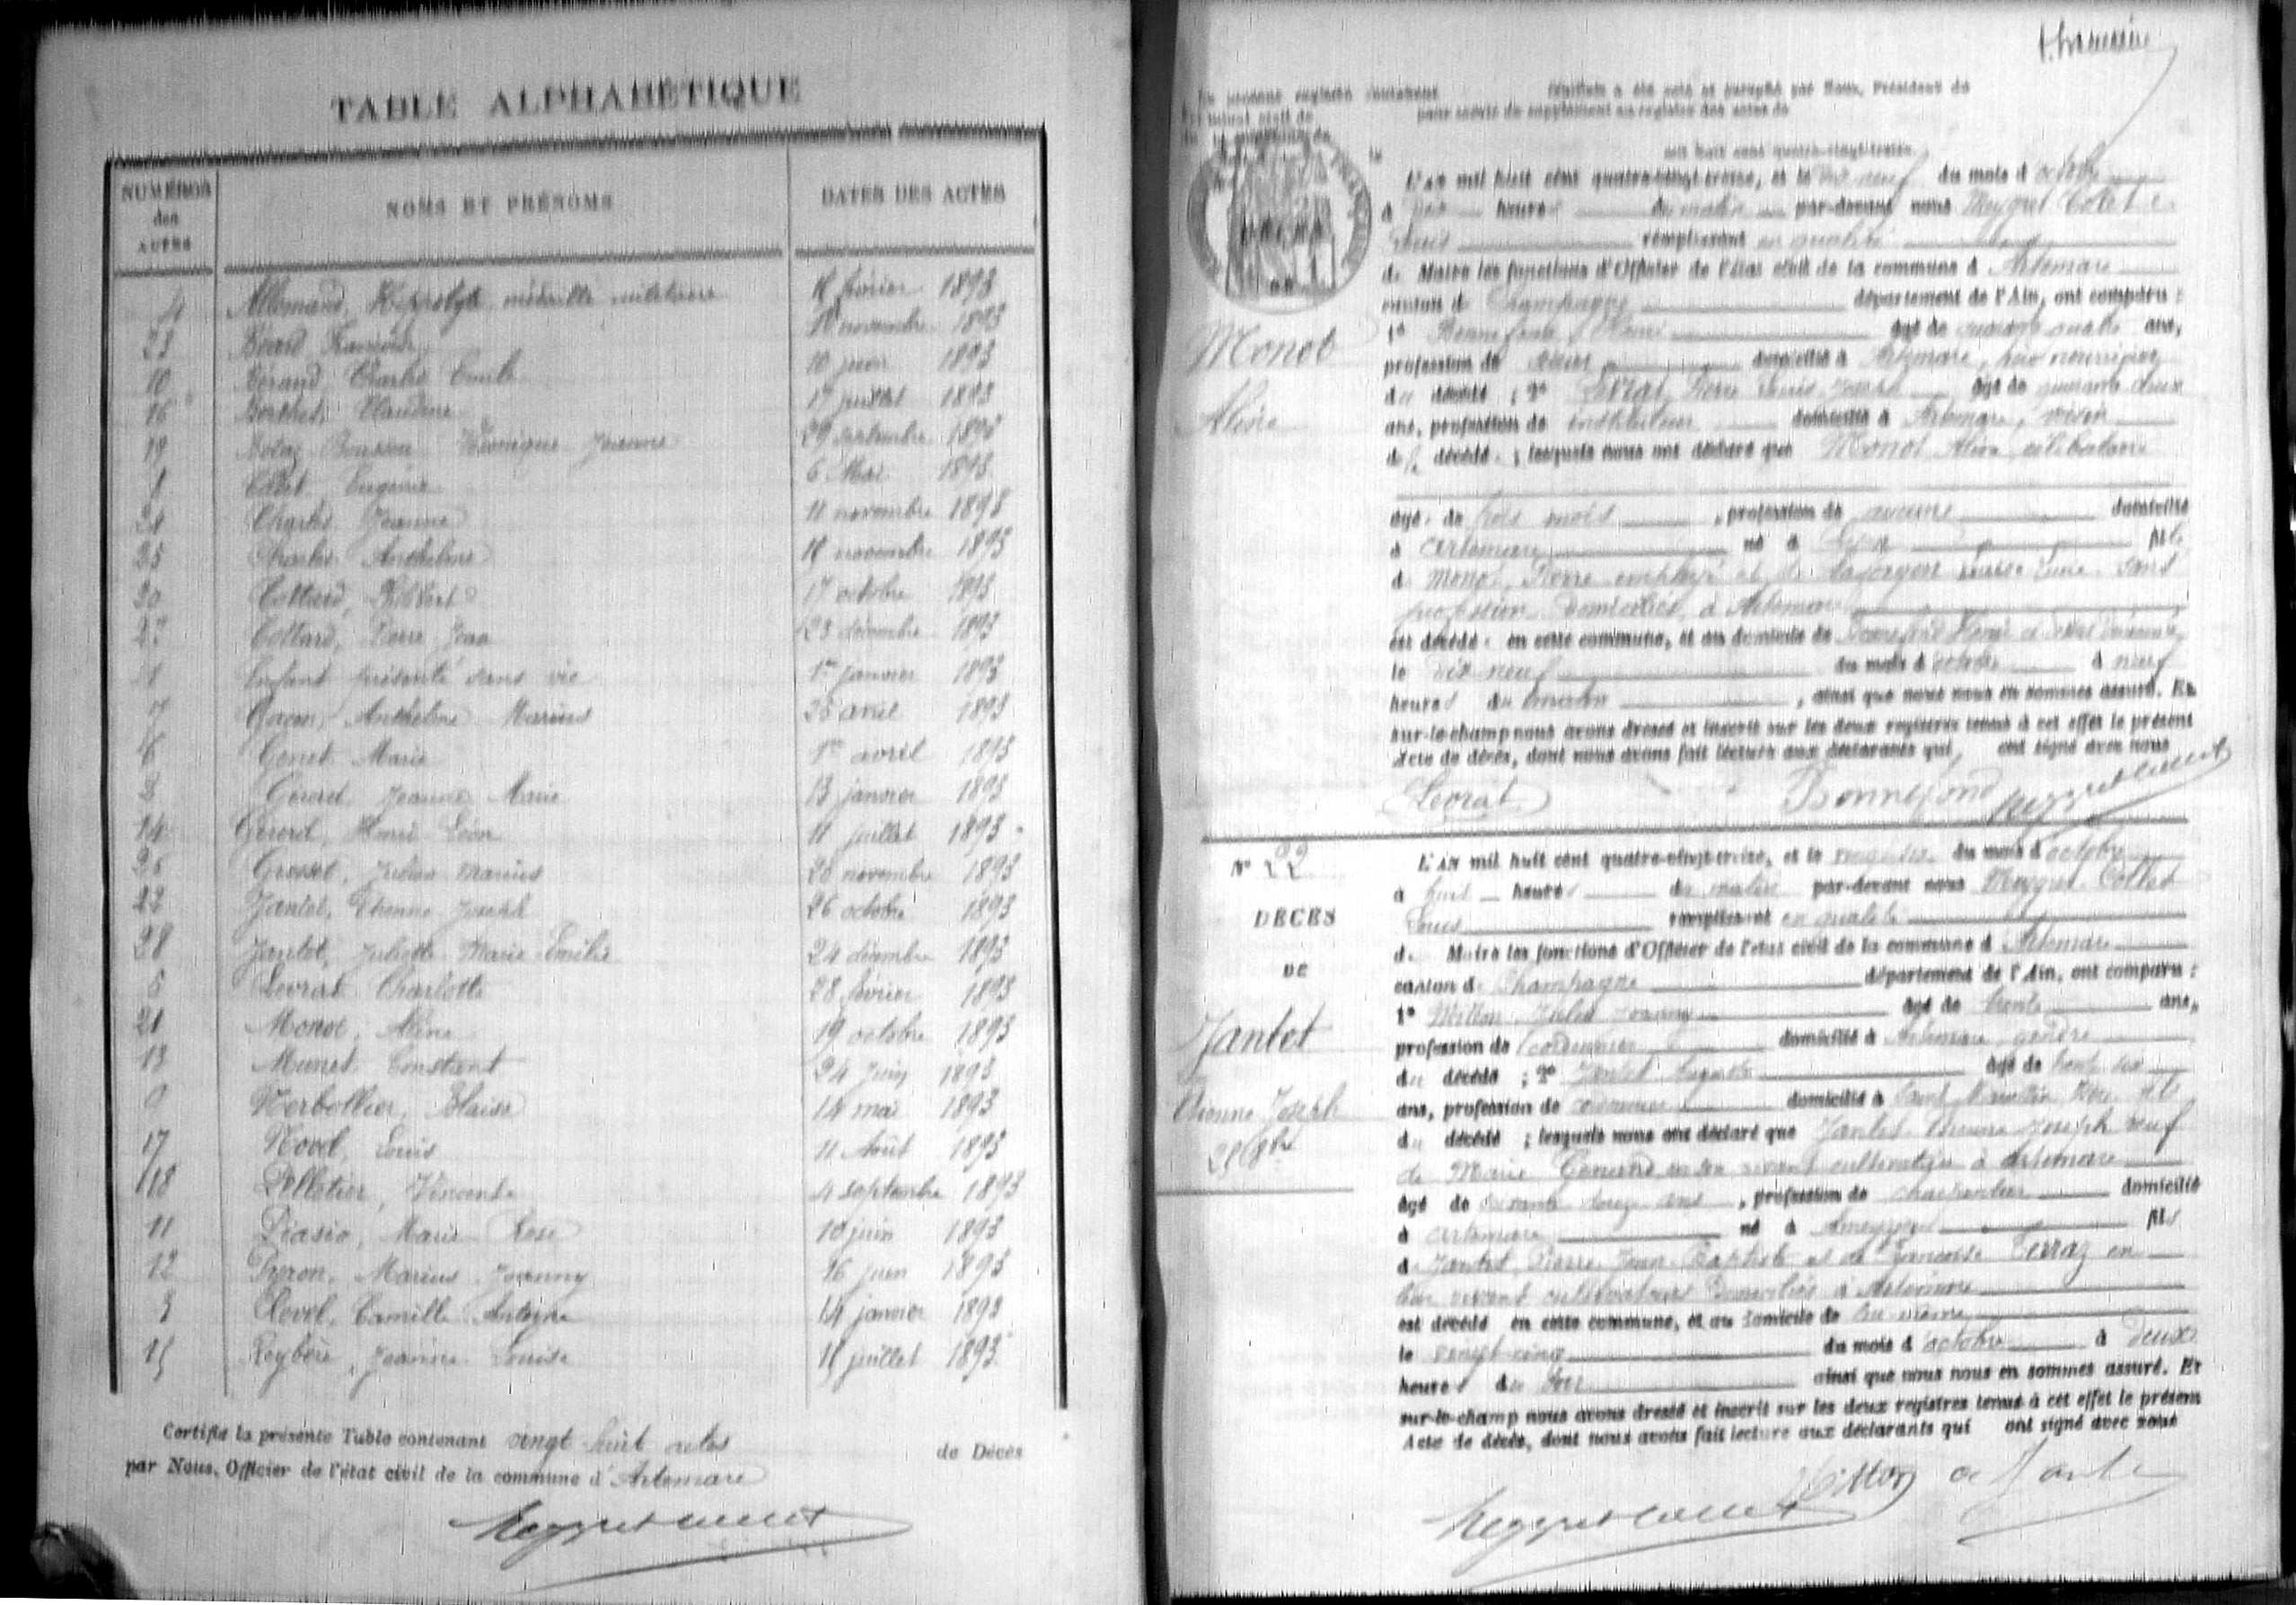 TABLE ALPHABÉTIQUE
NUMÉROS
des
ACTES
NOMS ET PRÉNOMS
DATES DES ACTES
4 Allemand, Hippolyte médaille militaire 18 février 1893
23 Béard 18 novembre 1893
10 Béraud, Charles Emile 10 juin 1893
16 Berthet, Claudine 17 juillet 1893
19 Véronique Jeanne 29 septembre 1893
8 Collet Eugénie 6 Mai 1893
24 Charlin Jeanne 11 novembre 1893
25 Charlin Anthelme 18 novembre 1893
20 Collard, Philibert 17 octobre 1893
27 Collard, Pierre Jean 23 décembre 1893
1 Enfant présenté sans vie 1er janvier 1893
7 Anthelme Marius 25 avril 1893
6 Genet Marie 1er avril 1893
2 Girerd Jeanne Marie 13 janvier 1893
14 Girerd, Henri Léon 11 juillet 1893
26 Grosset, Julien Marius 20 novembre 1893
22 Jantet, Etienne Joseph 26 octobre 1893
28 Jantet, Juliette Marie Emilie 24 décembre 1893
5 Levrat Charlotte 28 février 1893
21 Monot, Aline 19 octobre 1893
13 Munet Constant 24 juin 1893
9 Nerbollier, Blaise 14 mai 1893
17 Novel, Louis 11 Août 1893
18 Pelletier, Vincent 4 septembre 1893
11 Piasio, Marie Rose 10 juin 1893
12 Marius Joanny 16 juin 1893
3 Camille Antoine 14 janvier 1893
15 Jeanne Louise 11 juillet 1893
Certifié la présente Table contenant vingt huit actes de Décès
par Nous, Officier de l'état civil de la commune d'Artemare
Meygret Collet
Le présent registre contenant feuillets a été coté et paraphé par Nous, Président du
Tribunal civil de pour servir de supplément au registre des actes de
mil huit cent quatre-vingt-treize
L'AN mil huit cent quatre-vingt-treize, et le dix neuf du mois d'octobre
à heures du matin par-devant nous Meygret Collet
Louis remplissant en qualité
de Maire les fonctions d'Officier de l'état civil de la commune d'Artemare
canton de Champagne département de l'Ain, ont comparu :
Monot
1° Bonnefond, Henri âgé de quatre ans,
profession de domicilié à Artemare, père nourricier
du décédé ; 2° Levrat, Pierre Louis Joseph âgé de quarante deux
Aline
ans, profession de instituteur domicilié à Artemare, voisin
de la décédée ; lesquels nous ont déclaré que Monot Aline, célibataire
âgée de trois mois, profession de aucune domiciliée
à Artemare née à Lyon fille
de Monot, Pierre employé et de Louise sans
profession domiciliés à Artemare
est décédée en cette commune, et au domicile de Bonnefond Henri
le dix neuf du mois d'octobre à neuf
heures du matin, ainsi que nous nous en sommes assuré. Et
sur-le-champ nous avons dressé et inscrit sur les deux registres tenus à cet effet le présent
Acte de décès, dont nous avons fait lecture aux déclarants qui, ont signé avec nous
Levrat Bonnefond Meygret Collet
N° 22
DÉCÈS
DE
Jantet
Etienne Joseph
25 8bre
L'AN mil huit cent quatre-vingt-treize, et le vingt six du mois d'octobre
à huit heures du matin par-devant nous Meygret Collet
Louis remplissant en qualité
de Maire les fonctions d'Officier de l'état civil de la commune d'Artemare
canton de Champagne département de l'Ain, ont comparu :
1° Millon Jules Joanny âgé de trente ans,
profession de cordonnier domicilié à Artemare, gendre
du décédé ; 2° Jantet Auguste âgé de trente six
ans, profession de domicilié à Saint Marcellin, fils
du décédé ; lesquels nous ont déclaré que Jantet Etienne Joseph veuf
de Marie en son vivant cultivatrice à Artemare
âgé de soixante douze ans, profession de charpentier domicilié
à Artemare né à Ameyzieu fils
de Jantet, Pierre Jean Baptiste et de Françoise Terraz en
leur vivant cultivateurs domiciliés à Artemare
est décédé en cette commune, et au domicile de lui même
le vingt cinq du mois d'octobre à deux
heures du soir ainsi que nous nous en sommes assuré. Et
sur-le-champ nous avons dressé et inscrit sur les deux registres tenus à cet effet le présent
Acte de décès, dont nous avons fait lecture aux déclarants qui ont signé avec nous
Meygret Collet Millon a Jantet